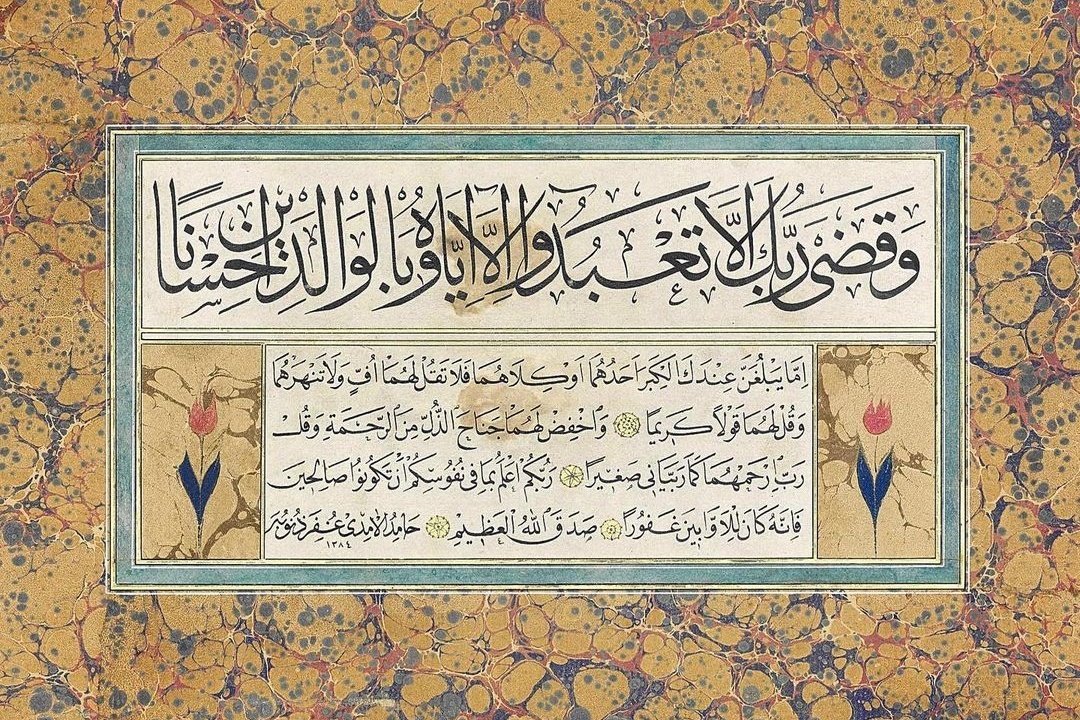 وَقَضٰى رَبُّكَ اَلَّا تَعْبُدُوا اِلَّا اِيَّاهُ وَبِالْوَالِدَيْنِ اِحْسَانًا
اِمَّا يَبْلُغَنَّ عِنْدَكَ الْكِبَرَ اَحَدُهُمَا اَوْ كِلَاهُمَا فَلَا تَقُلْ لَهُمَا اُفٍّ وَلَا تَنْهَرْهُمَا
وَقُلْ لَهُمَا قَوْلًا كَرِيمًا وَاخْفِضْ لَهُمَا جَنَاحَ الذُّلِّ مِنَ الرَّحْمَةِ وَقُلْ
رَبِّ ارْحَمْهُمَا كَمَا رَبَّيَانِي صَغِيرًا رَبُّكُمْ اَعْلَمُ بِمَا فِي نُفُوسِكُمْ اِنْ تَكُونُوا صَالِحِينَ
فَاِنَّهُ كَانَ لِلْاَوَّابِينَ غَفُورًا صَدَقَ اللّٰهُ الْعَظِيمُ حَامِدُ الْاٰمِدِي غُفِرَ ذُنُوبُهُ
١٣٨٤